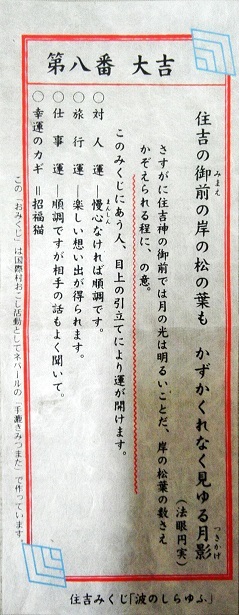 第八番 大吉
住吉の御前の岸の松の葉も かずかくれなく見ゆる月影
みまえ
つきかけ
(法眼円実)
さすがに住吉神の御前では月の光は明るいことだ、岸の松葉の数さえ
かぞえられる程に、の意。
このみくじにあう人、目上の引立てにより運が開けます。
○対人運―慢心なければ順調です。
まんしん
○旅行運―楽しい想い出が得られます。
○仕事運―順調ですが相手の話もよく聞いて。
○幸運のカギ=招福猫
この「おみくじ」は国際村おこし活動としてネパールの「手漉きみつまた」で作っています。
住吉みくじ「波のしらゆふ」